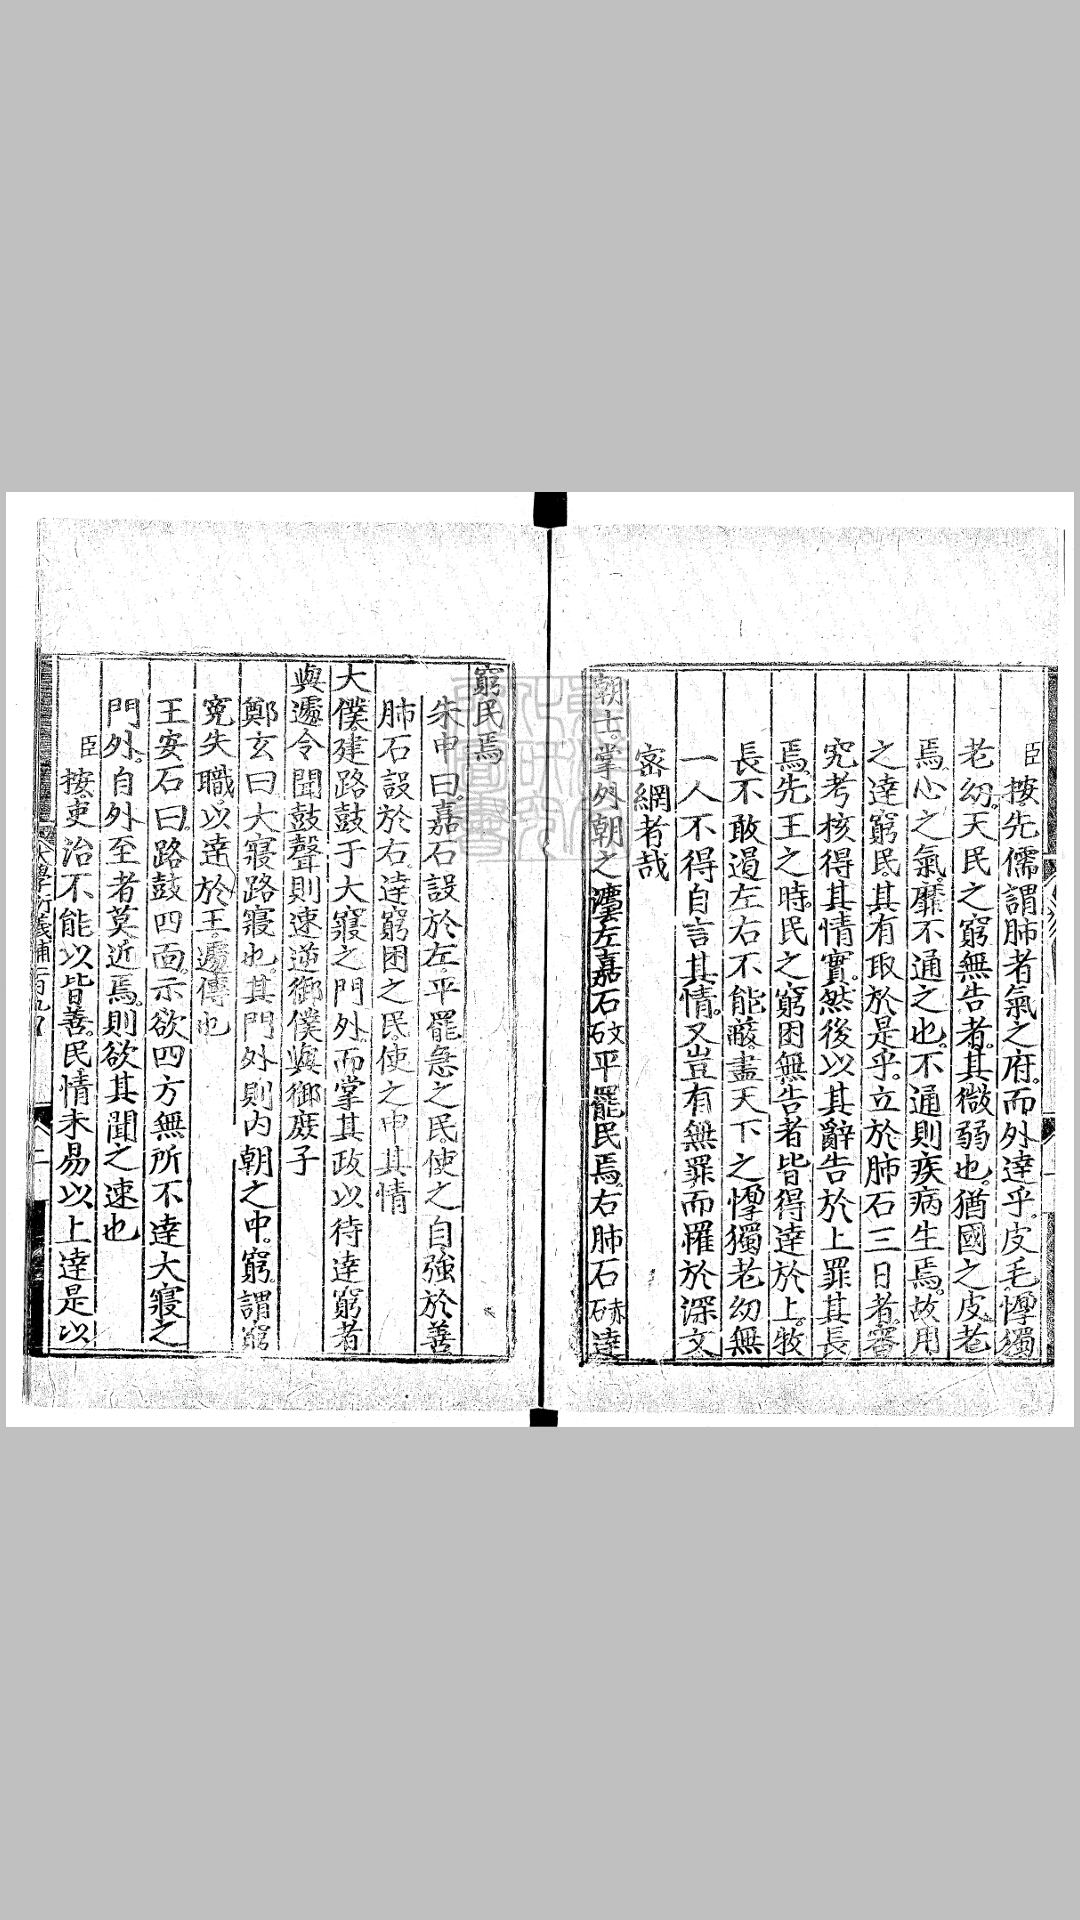 臣按先儒謂肺者氣之府。而外達乎。皮毛惸獨
老幼。天民之窮無告者。其微弱也。猶國之皮毛
焉。心之氣。靡不通之也。不通則疾病生焉。故用
之達窮民。其有取於是乎。立於肺石三日者。審
究考核得其情實。然後以其辭告於上罪其長
焉。先王之時。民之窮困無告者皆得達於上。牧
長不敢遏左右不能蔽。盡天下之惸獨老幼無
一人不得自言其情。又豈有無罪而罹於深文
密網者哉
朝士。掌外朝之灋左嘉石平罷民焉。右肺石達
窮民焉
朱申曰。嘉石設於左。平罷怠之民。使之自強於善
肺石設於右。達窮困之民。使之申其情
大僕建路鼓于大寢之門外。而掌其政以待達窮者
與遽令聞鼓聲則速逆御僕與御庶子
鄭玄曰大寢路寢也。其門外則內朝之中。窮。謂窮
冤失職。以達於王。遽傳也
王安石曰。路鼓四面。示欲四方無所不達大寢之
門外。自外至者莫近焉。則欲其聞之速也
臣按。吏治不能以皆善。民情未易以上達是以
大學衍義補一百九